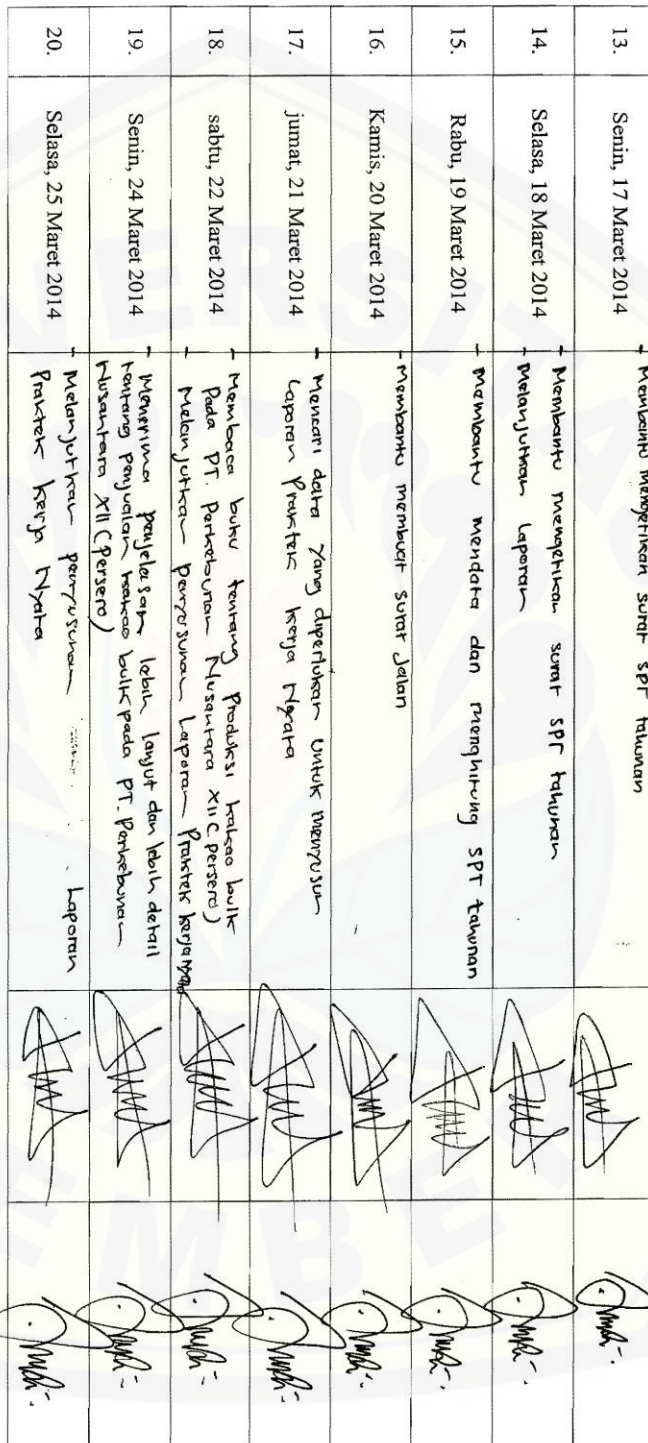 13.
Senin, 17 Maret 2014
- Membantu mengetikan surat SPT tahunan
14.
Selasa, 18 Maret 2014
- Membantu mengetikan surat SPT tahunan
- Melanjutkan Laporan
15.
Rabu, 19 Maret 2014
- Membantu mendata dan menghitung SPT tahunan
16.
Kamis, 20 Maret 2014
- Membantu membuat surat Jalan
17.
jumat, 21 Maret 2014
- Mencari data yang diperlukan untuk menyusun
Laporan Praktek Kerja Nyata
18.
sabtu, 22 Maret 2014
- Membaca buku tentang Produksi kakao bulk
Pada PT. Perkebunan Nusantara XII (Persero)
- Melanjutkan penyusunan Laporan Praktek kerja nyata
19.
Senin, 24 Maret 2014
- Menerima penjelasan lebih lanjut dan lebih detail
tentang penjualan kakao bulk pada PT. Perkebunan
Nusantara XII (Persero)
20.
Selasa, 25 Maret 2014
- Melanjutkan penyusunan Laporan
Praktek Kerja Nyata